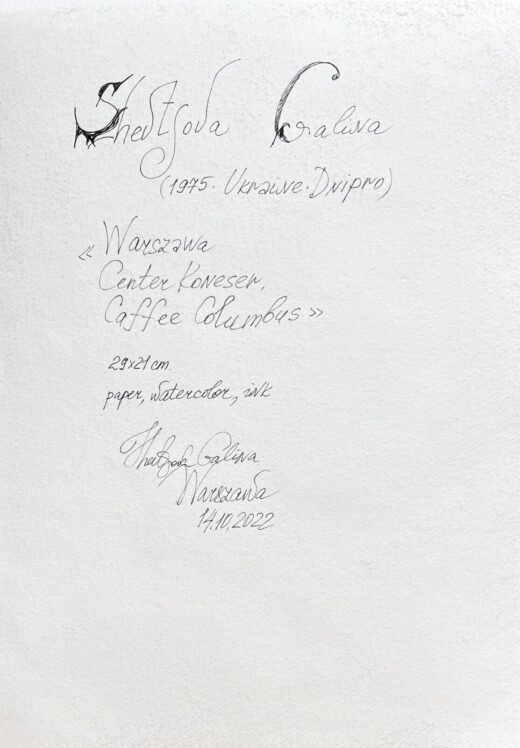 Shevtsova Galina
(1975. Ukraine. Dnipro)
« Warszawa
Center Koneser,
Caffee Columbus »
29x21 cm.
paper, watercolor, ink
Shevtsova Galina
Warszawa
14.10.2022